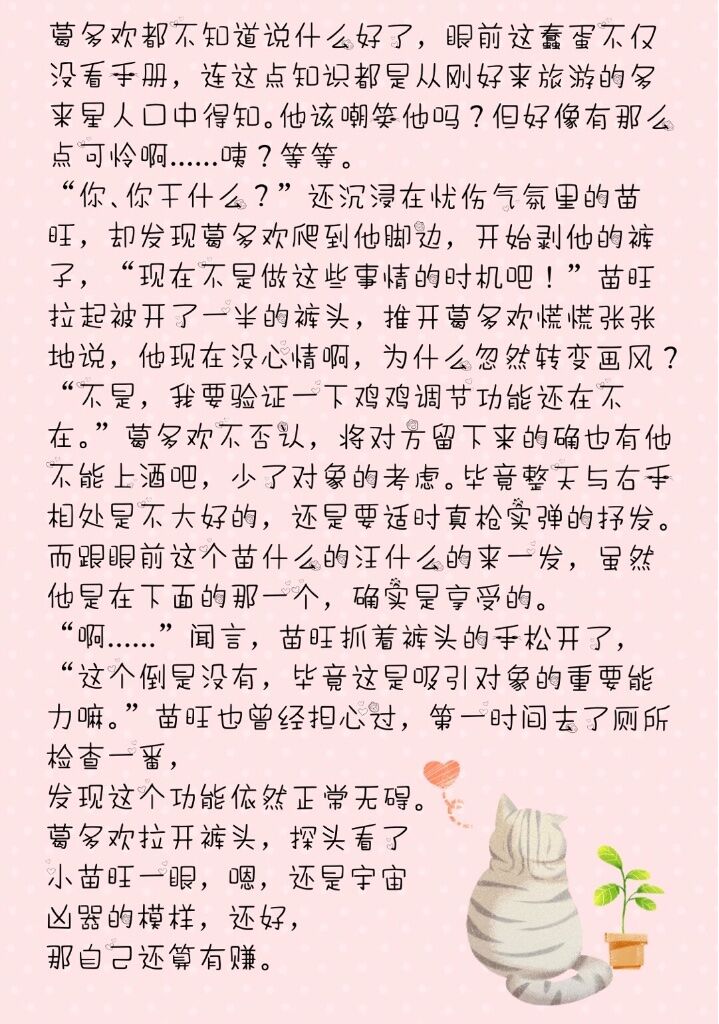 葛多欢都不知道说什么好了，眼前这蠢蛋不仅
没看手册，连这点知识都是从刚好来旅游的多
来星人口中得知。他该嘲笑他吗？但好像有那么
点可怜啊……咦？等等。
“你、你干什么？”还沉浸在忧伤气氛里的苗
旺，却发现葛多欢爬到他脚边，开始剥他的裤
子，“现在不是做这些事情的时机吧！”苗旺
拉起被开了一半的裤头，推开葛多欢慌慌张张
地说，他现在没心情啊，为什么忽然转变画风？
“不是，我要验证一下鸡鸡调节功能还在不
在。”葛多欢不否认，将对方留下来的确也有他
不能上酒吧，少了对象的考虑。毕竟整天与右手
相处是不大好的，还是要适时真枪实弹的抒发。
而跟眼前这个苗什么的汪什么的来一发，虽然
他是在下面的那一个，确实是享受的。
“啊……”闻言，苗旺抓着裤头的手松开了，
“这个倒是没有，毕竟这是吸引对象的重要能
力嘛。”苗旺也曾经担心过，第一时间去了厕所
检查一番，
发现这个功能依然正常无碍。
葛多欢拉开裤头，探头看了
小苗旺一眼，嗯，还是宇宙
凶器的模样，还好，
那自己还算有赚。